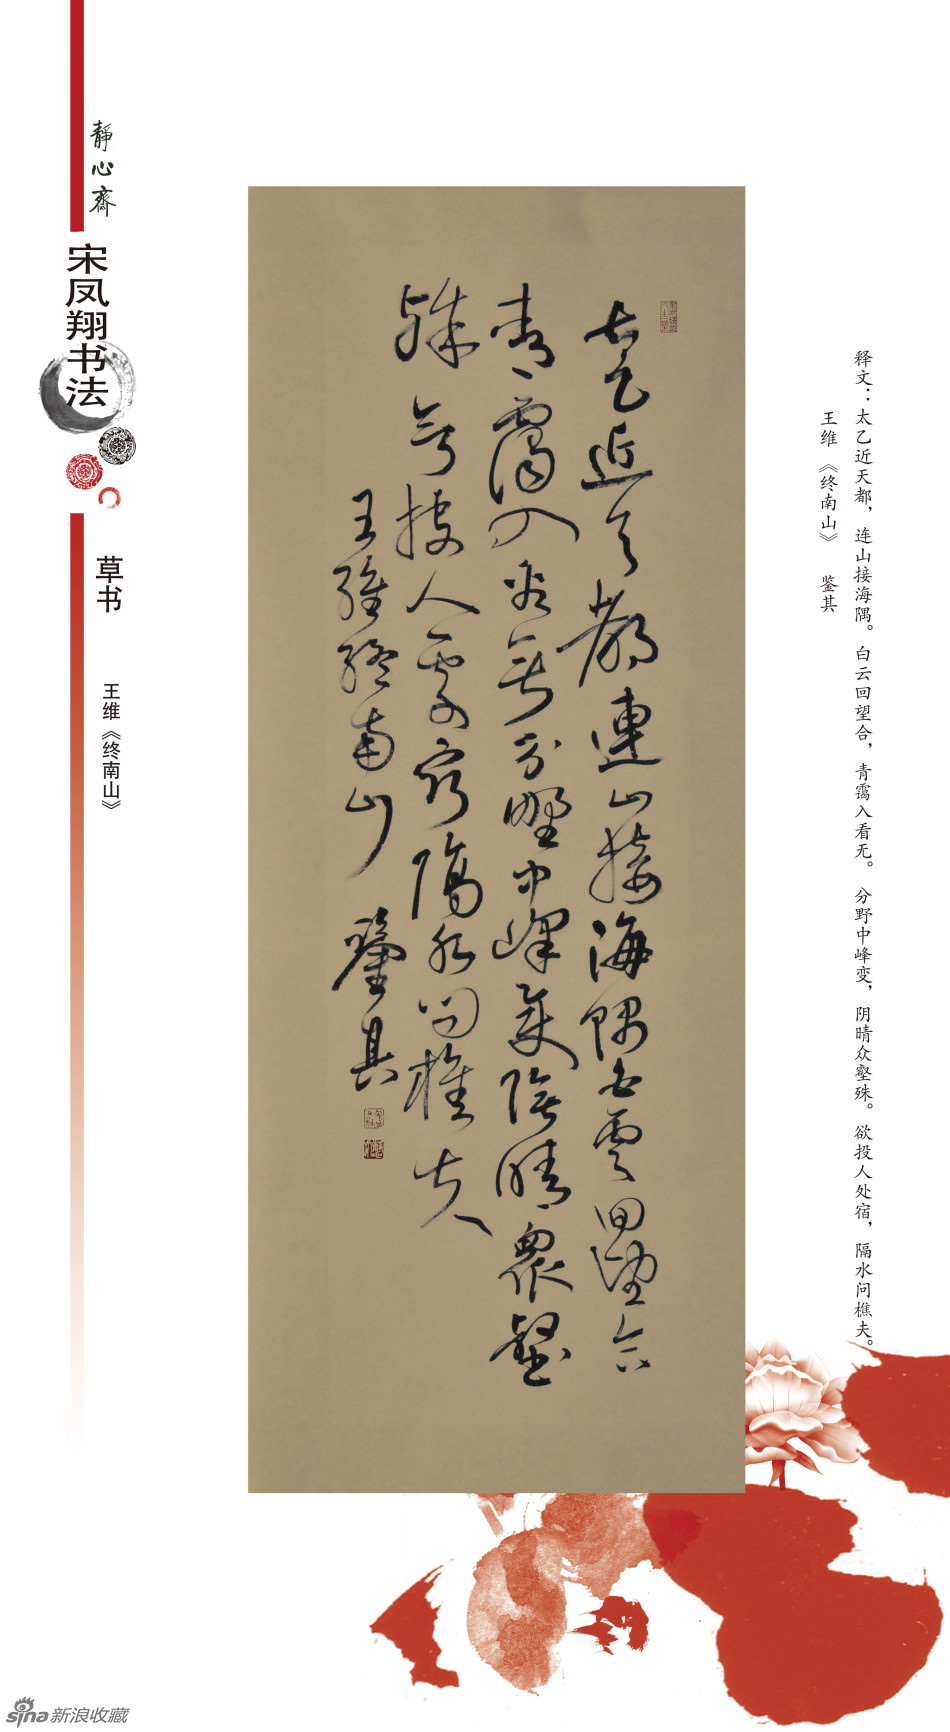 靜心齋
宋凤翔书法
草书
王维《终南山》
太乙近天都連山接海隅白雲回望合
青靄入看無分野中峰變陰晴衆壑
殊欲投人處宿隔水問樵夫
王維終南山 鑒其
释文：太乙近天都，连山接海隅。白云回望合，青霭入看无。分野中峰变，阴晴众壑殊。欲投人处宿，隔水问樵夫。
王维《终南山》 鉴其
sina新浪收藏